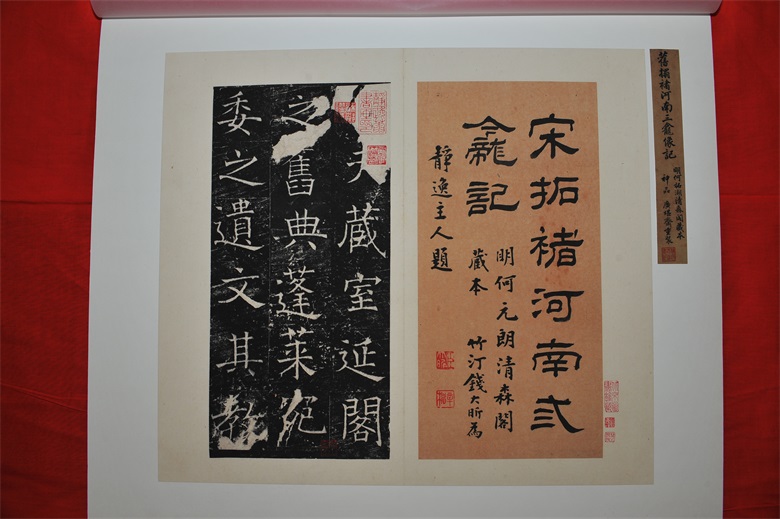 舊搨褚河南三龕像記
明何柘湖清森閣藏本
神品
宋拓褚河南弎
龕記
明何元朗清森閣
藏本 竹汀錢大昕為
靜逸主人題
夫藏室延閣
之舊典蓬萊宛
委之遺文其教